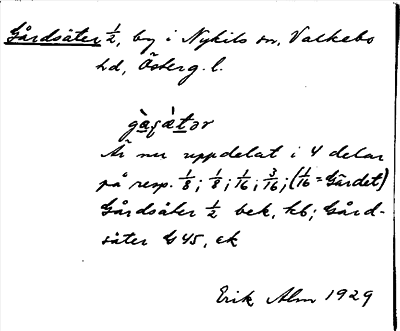 Gårdsäter ½, by i Nykils sn, Valkebo
hd, Österg. l.
gàʃæ̀tər
Är nu uppdelat i 4 delar
på resp. 1/8; 1/8; 1/16; 3/16; (1/16 = Gärdet)
Gårdsäter ½ bek, kb; Gård-
säter G45, ek
Erik Alm 1929